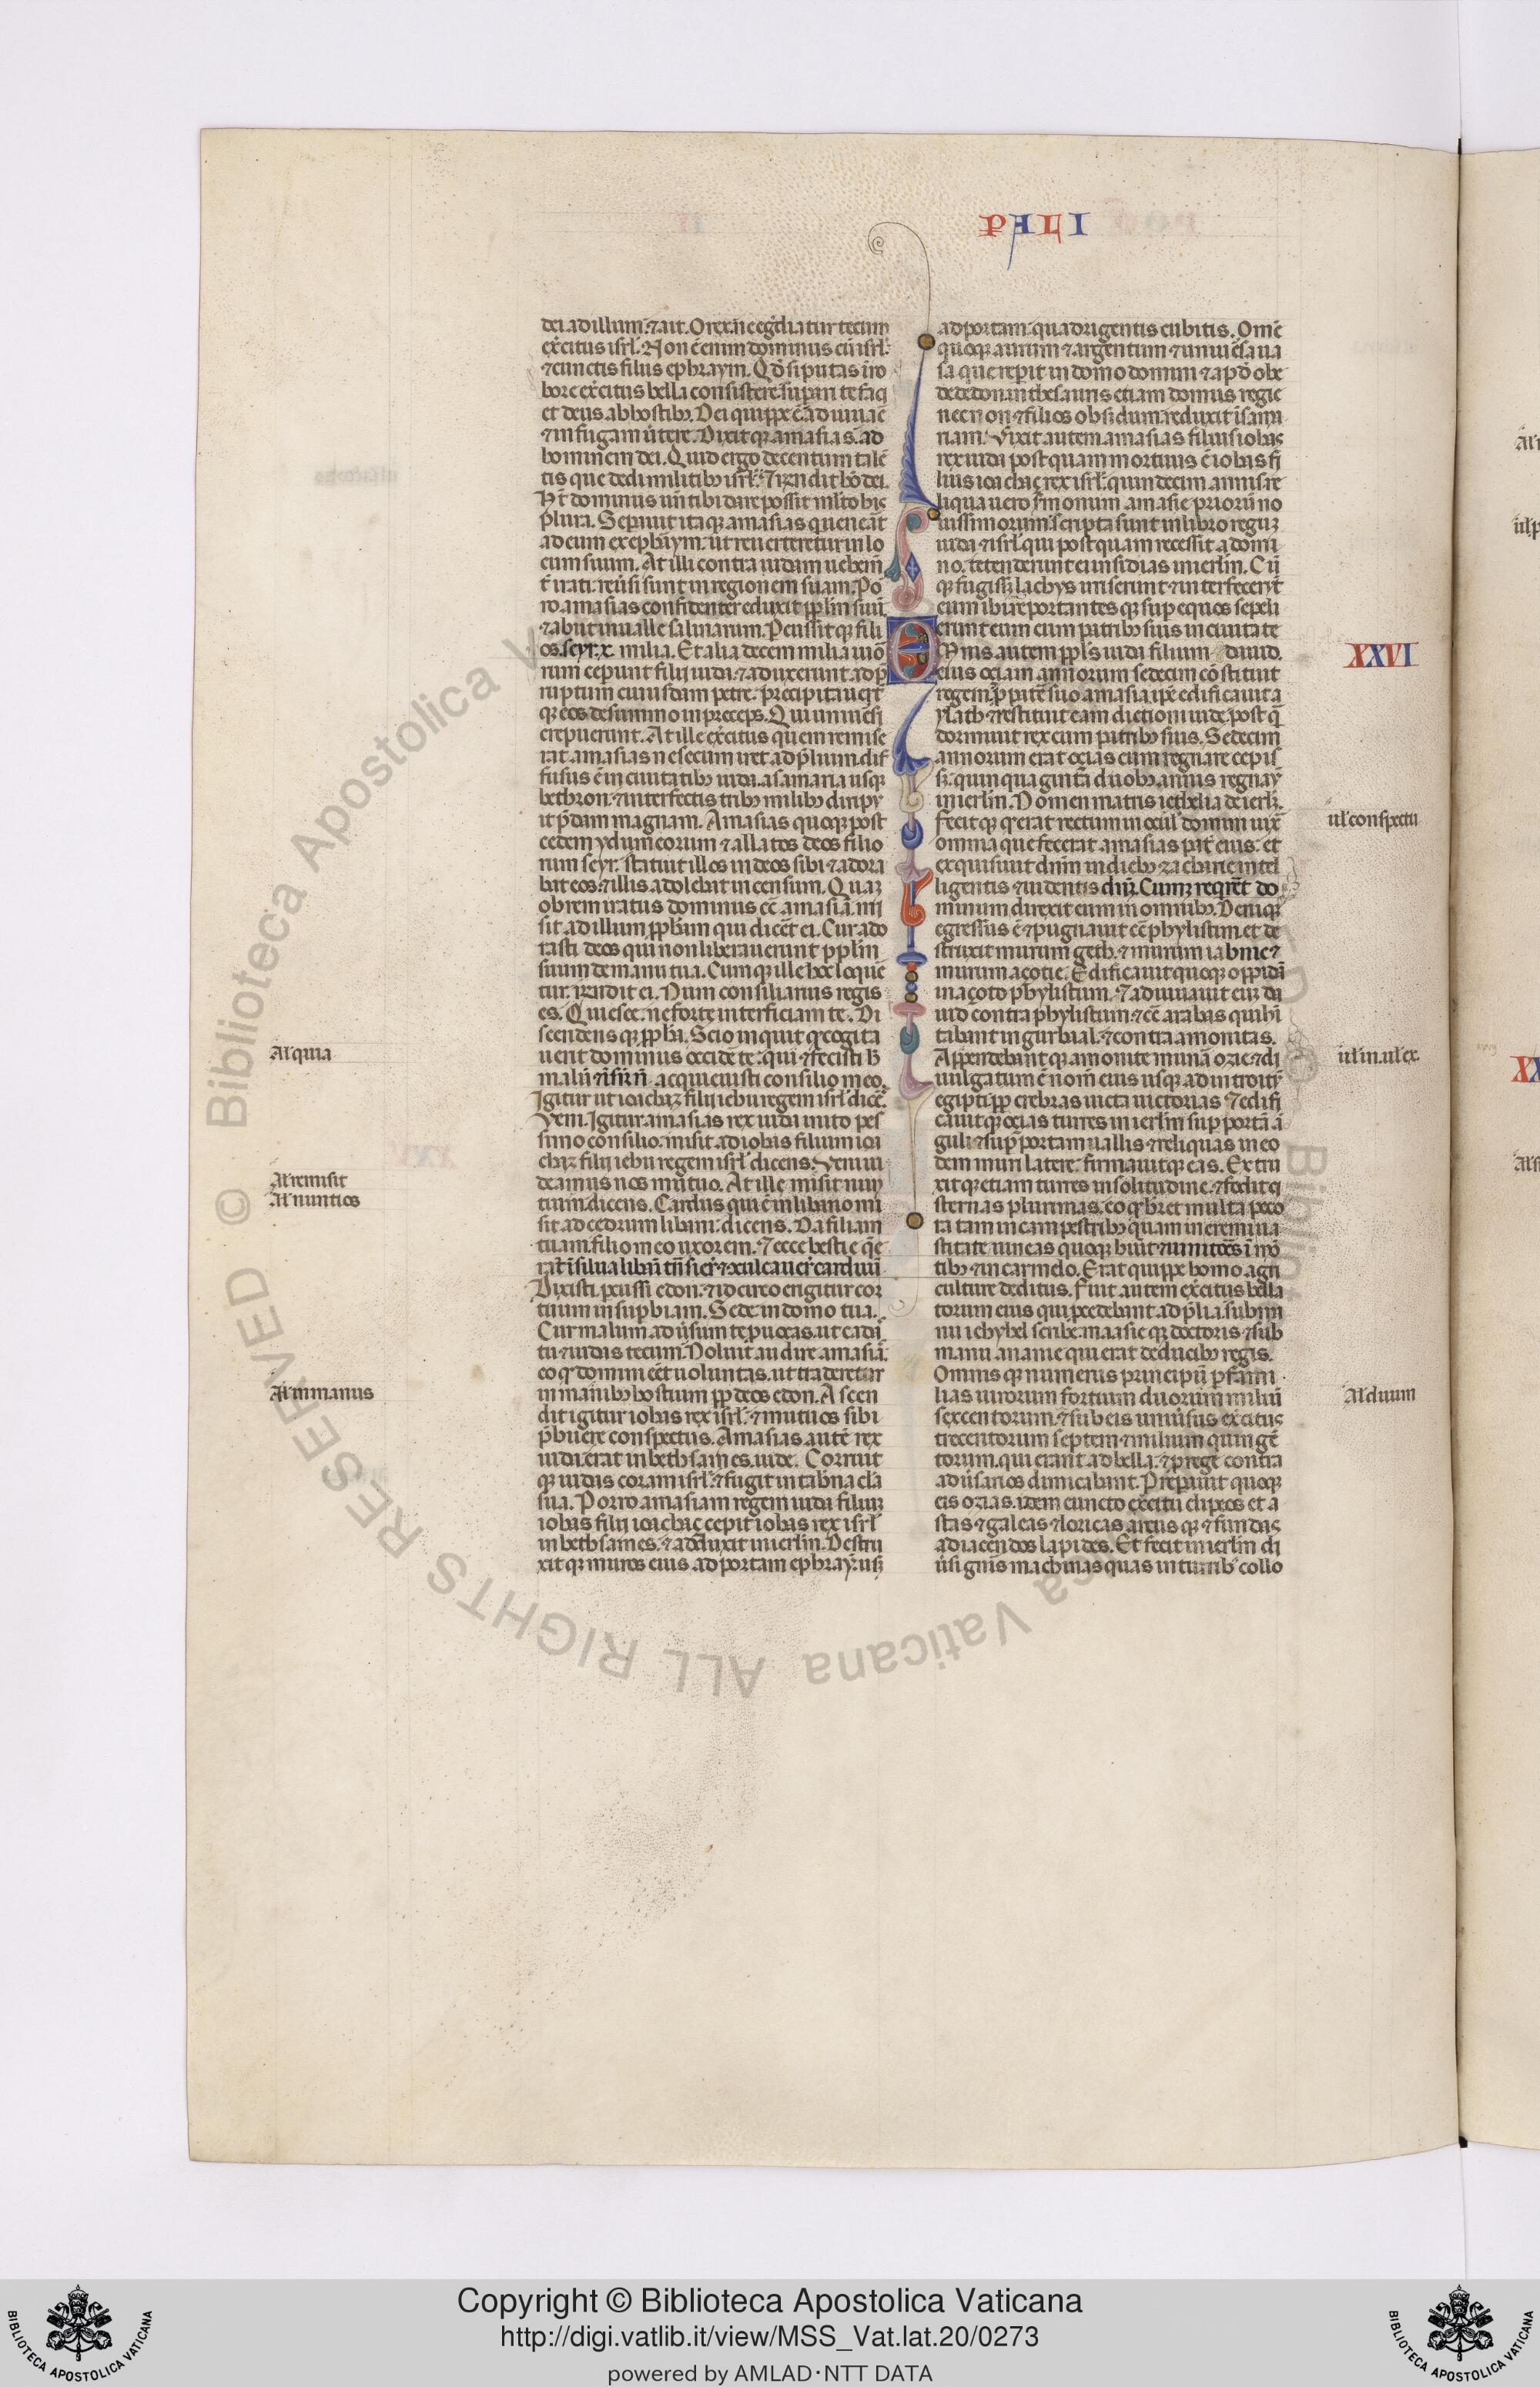 PALI
dei ad illum. ⁊ ait. O rex. n̄ egᷓdiatur tecum
ex̄citus isrl̄. Non ē enim dominus cū isrl̄.
⁊ cunctis filiis ephraym. Qd̓ si putas ī ro
bore ex̄citus bella consistere. suꝑari te faci
et deus ab hostibꝫ. Dei quippe ē adiuuare
⁊ in fugam ūtere. Dixit qꝫ amasias. ad
hominem dei. Quid ergo de centum talē
tis que dedi militibꝫ isrl̄.
H̄t dominus vn̄ tibi dare possit ml̄to hiis
plura. Seꝑauit itaqꝫ amasias
ad eum ex ephraym. ut reuerteretur in lo
cum suum. At illi contra iudam uehem̄
t̄ irati. reūsi sunt in regionem suam. Por
ro amasias confidenter eduxit ppl̄m suū.
⁊ abiit in ualle salinarum. Percussit qꝫ fili
os. seyr. x. milia. Et alia decem milia uiro
rum ceperunt filij iuda. ⁊ adduxerunt ad p̄
ruptum cuiusdam petre. precipitauer̄t
qꝫ eos de summo in preceps. Qui uniuersi
crepuerunt. At ille ex̄citus quem remise
rat amasias ne secum iret ad p̄lium. dif
fusus ē in ciuitatibꝫ iuda. a samaria usqꝫ
bethron. ⁊ interfectis tribꝫ milibꝫ diripu
it p̄dam magnam. Amasias quoqꝫ post
cedem ydumeorum ⁊ allatos deos filio
rum seyr. statuit illos in deos sibi ⁊ adora
bat eos. ⁊ illis adolebat incensum. Quaꝫ
obrem iratus dominus cō amasiā. mi
sit ad illum ꝓph̄am qui diceret ei. Cur ado
rasti deos qui non liberauerunt ppl̄m
suum de manu tua. Cumqꝫ ille hec loque
tur. rn̄dit ei. Num consiliarius regis
es. Quiesce. ne forte interficiam te. Di
scendens qꝫ ꝓph̄a. Scio inquit qꝫ cogita
uerit dominus occidere te. qui ⁊ fecisti h̄
malū ⁊ insuꝑ n̄ acquieuisti consilio meo.
Igitur
Veni. Igitur amasias rex iuda inito pes
simo consilio. misit ad iohas filium ioa
chaꝫ filij iehu regem isrl̄ dicens. Veni ui
deamus nos mutuo. At ille misit nun
tium. dicens. Cardus qui ē in libano mi
sit ad cedrum libani. dicens. Da filiam
tuam. filio meo uxorem. ⁊ ecce bestie q̄ e
rant ī silua libani
Dixisti percussi edon. ⁊ idcirco erigitur cor
tuum in suꝑbiam. Sede in domo tua.
Cur malum adūsum te prouocas. ut cadas
tu ⁊ iudas tecum. Noluit audire amasias.
eo qꝫ domini esset uoluntas. ut traderetur
in manibꝫ hostium ꝓp̄ deos edon. Ascen
dit igitur iohas rex isrl̄. ⁊ mutuos sibi
p̄buere conspectus. Amasias autē rex
iuda. erat in bethsames. iude. Corruit
qꝫ iudas coram isrl̄. ⁊ fugit in tab̄nacla
sua. Porro amasiam regem iuda filium
iohas filij ioachaꝫ cepit iohas rex isrl̄
in bethsames. ⁊ adduxit in ierl̄m. Destru
xit qꝫ muros eius. ad portam ephraym. usqꝫ
ad portam. quadrigentis cubitis. Om̄e
quoqꝫ aurum ⁊ argentum ⁊ uniuersa ua
sa que reꝑit in domo domini ⁊ apud obe
dedon. in thesauris etiam domus regie
necnon ⁊ filios obsidum. reduxit ī sama
riam. Vixit autem amasias filius iohas
rex iuda postquam mortuus ē iohas fi
lius ioachaꝫ rex isrl̄. quindecim annis. re
liqua uero s̄monum. amasie priorū ⁊ no
uissimorum. scripta sunt in libro reguꝫ
iuda ⁊ isrl̄. qui postquam recessit a domi
no. tetenderunt ei insidias in ierl̄m. Cū
qꝫ fugisset lachys miserunt ⁊ interfecer̄t
eum ibi. reportantes qꝫ suꝑ equos sepeli
erunt eum cum patribꝫ suis in ciuitate
Omnis autem ppl̄s iuda filium dauid.
eius oçiam annorum sedecim cōstituit
regem. ꝓ patre suo amasia. ip̄e edificauit a
ylath. ⁊ restituit eam dictioni iude. postq̄
dormiuit rex cum patribꝫ suis. Sedecim
annorum erat oçias cum regnare cepis
sꝫ. quinquaginta duobꝫ annis regnauit
in ierl̄m. Nomen matris iethelia de ierl̄m.
Fecit qꝫ qꝫ erat rectum in oculis domini iuxͣ
omnia que fecerat amasias pater eius. et
exquisiuit dn̄m in diebꝫ zacharie intel
ligentis ⁊ uidentis dn̄ꝫ. Cumqꝫ requireret do
minum direxit eum in omnibꝫ. Deniqꝫ
egressus ē ⁊ pugnauit cō phylistim. et de
struxit murum geth. ⁊ murum iabnie ⁊
murum açotie. Edificauit quoqꝫ oppida
in açoto phylistum. ⁊ adiuuauit euꝫ do
mino contra phylistum. ⁊ cō arabas qui hi
tabant in gurbaal. ⁊ contra amonitas.
Appendebant qꝫ amonite munera ozie. ⁊ di
uulgatum ē nomen eius usqꝫ ad introitū
egipti. ꝓp̄ crebras uictorias. ⁊ edifi
cauit qꝫ oçias turres in ierl̄m suꝑ portā ā
guli. ⁊ suꝑ portam uallis. ⁊ reliquas in eo
dem muri latere. firmauit qꝫ eas. Extru
xit qꝫ etiam turres in solitudine. ⁊ fodit ci
sternas plurimas. eo qꝫ haberet multa peco
ra tam in campestribꝫ quam in eremi ua
stitate. uineas quoqꝫ habuit ⁊ uinitores ī mō
tibꝫ ⁊ in carmelo. Erat quippe homo agri
culture deditus. Fuit autem ex̄citus bella
torum eius qui ꝓcedebant ad p̄lia. sub ma
nu iehyhel scribe. maasie qꝫ doctoris. ⁊ sub
manu ananie qui erat de ducibꝫ regis.
Omnis qꝫ numerus principū ꝑ fami
lias uirorum fortium duorum miliū
sexcentorum. ⁊ sub eis uniūsus ex̄citus
trecentorum septem milium quingē
torum. qui erant ad bella. ⁊ ꝓ rege contra
adūsarios dimicabant. Preparauit quoqꝫ
eis ozias. idem cuncto ex̄citu clipeos et a
stas ⁊ galeas ⁊ loricas arcus qꝫ ⁊ fundas
ad iaciendos lapides. Et fecit in ierl̄m di
ūsi gn̄is machinas quas in turribꝫ collo
XXVI
Al' quia
Al' remisit
Al' nuntios
Al' in manus
ul' conspectu
ul' in. ul' ex
Al' duum
© Biblioteca Apostolica Vaticana ALL RIGHTS RESERVED
Copyright © Biblioteca Apostolica Vaticana
http://digi.vatlib.it/view/MSS_Vat.lat.20/0273
powered by AMLAD·NTT DATA
BIBLIOTECA APOSTOLICA VATICANA
BIBLIOTECA APOSTOLICA VATICANA